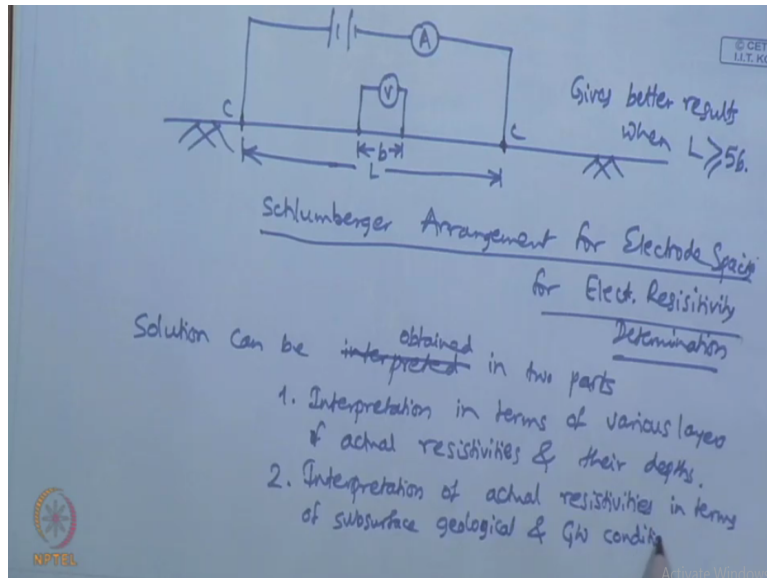 © CET
I.I.T. KG
A
V
C
C
b
L
Gives better results
when L ≥ 5b.
Schlumberger Arrangement for Electrode Spacin
for Elect. Resisitivity
Determination
Solution can be interpreted obtained in two parts
1. Interpretation in terms of various layers
of actual resistivities & their depths.
2. Interpretation of actual resistivities in terms
of subsurface geological & GW conditi
NPTEL
Activate Windows